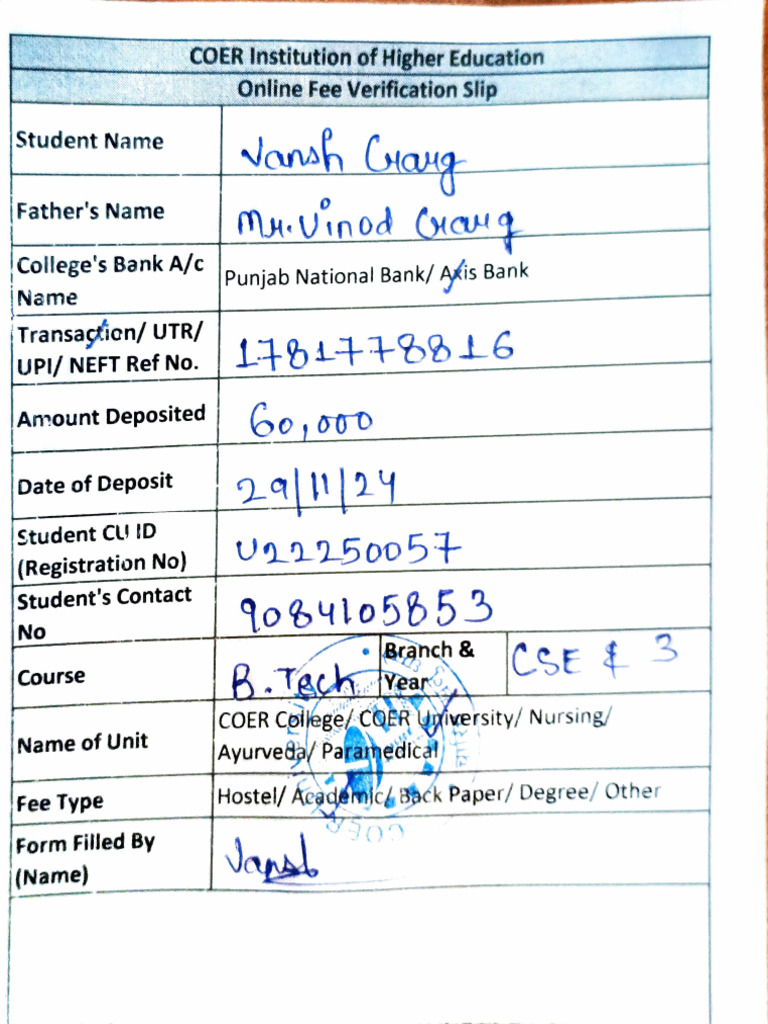 COER Institution of Higher Education
Online Fee Verification Slip
Student Name Vansh Garg
Father's Name Mr. Vinod Garg
College's Bank A/c Name Punjab National Bank/ Axis Bank
Transaction/ UTR/ UPI/ NEFT Ref No. 1781778816
Amount Deposited 60,000
Date of Deposit 29/11/24
Student CU ID (Registration No) U22250057
Student's Contact No 9084105853
Course B.Tech Branch & Year CSE & 3
Name of Unit COER College/ COER University/ Nursing/ Ayurveda/ Paramedical
Fee Type Hostel/ Academic/ Back Paper/ Degree/ Other
Form Filled By (Name) Vansh
COER